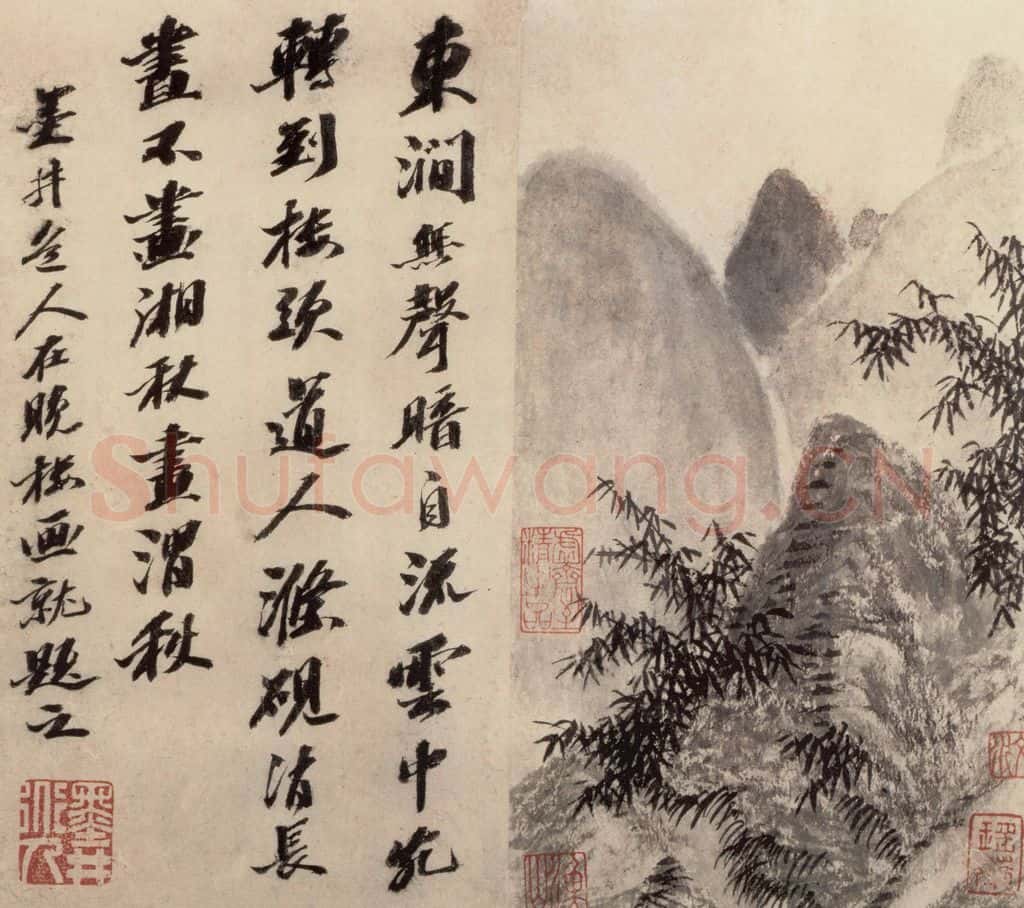 東澗無聲暗自流雲中宛
轉到樓頭道人滌硯消長
晝不畫湘秋畫渭秋
墨井道人在晚樓画就題之
墨井
Shufawang.CN